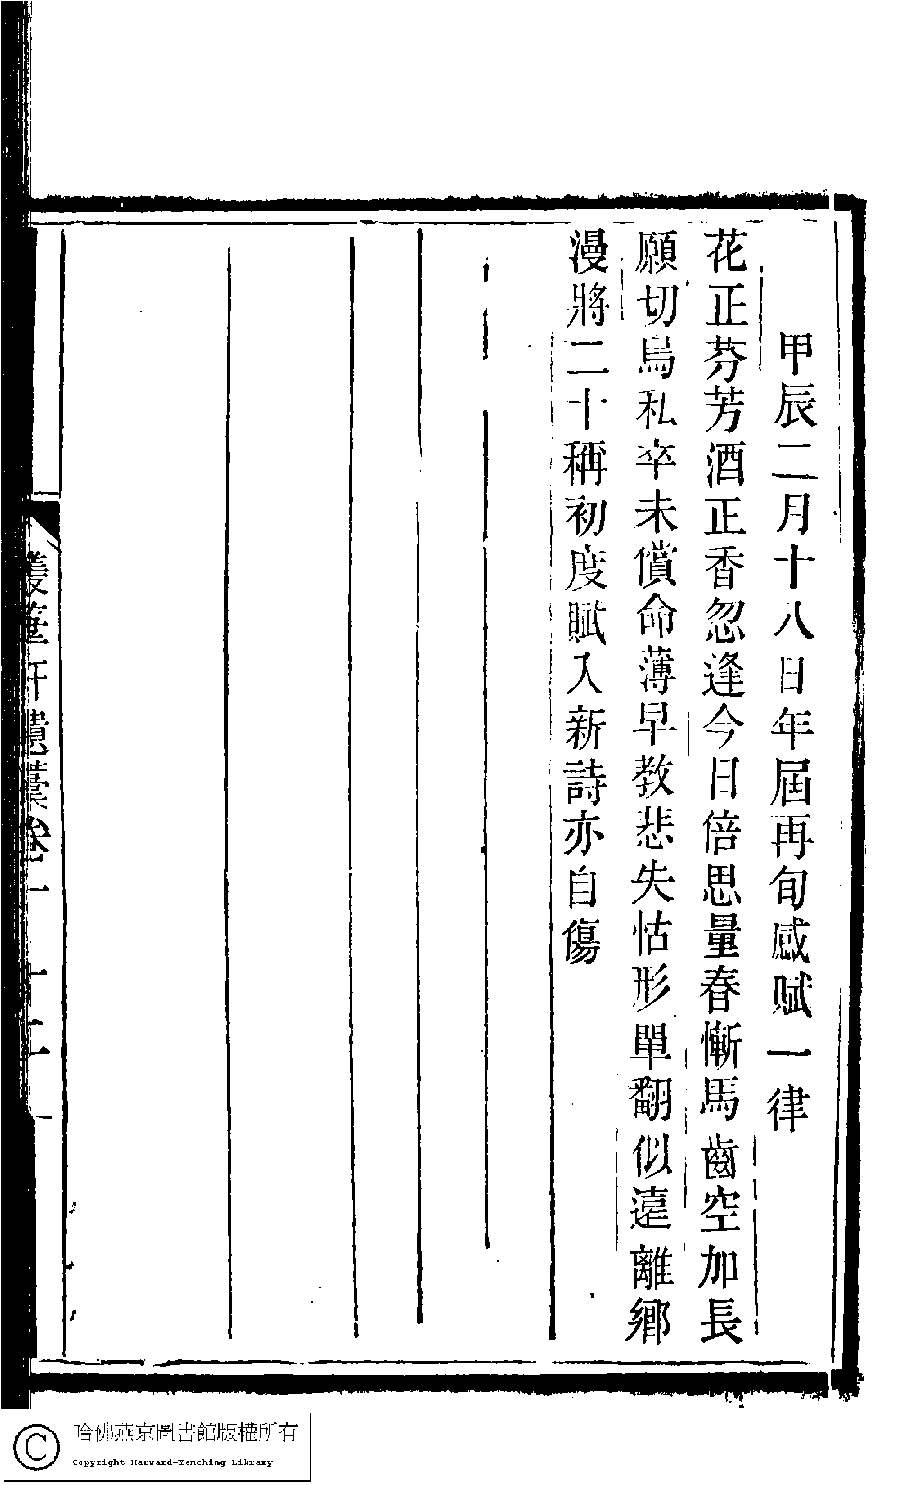 甲辰二月十八日年屆再旬感賦一律
花正芬芳酒正香忽逢今日倍思量春慚馬齒空加長
願切烏私卒未償命薄早教悲失怙形單翻似遠離鄉
漫將二十稱初度賦入新詩亦自傷
軒遺藁卷一 十二
哈佛燕京圖書館版權所有
Copyright Harvard-Yenching Library